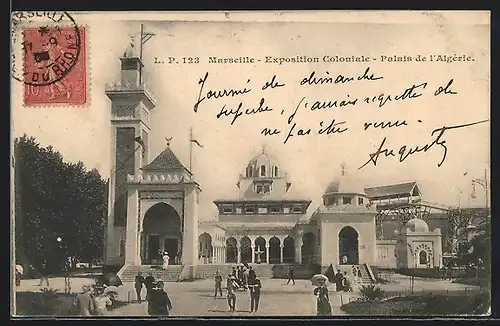 MARSEILLE
DU RHONE
10
L. P. 123 Marseille - Exposition Coloniale - Palais de l'Algérie.
Journée de dimanche
superbe, j'amais regretté de
ne pas être venu.
Auguste